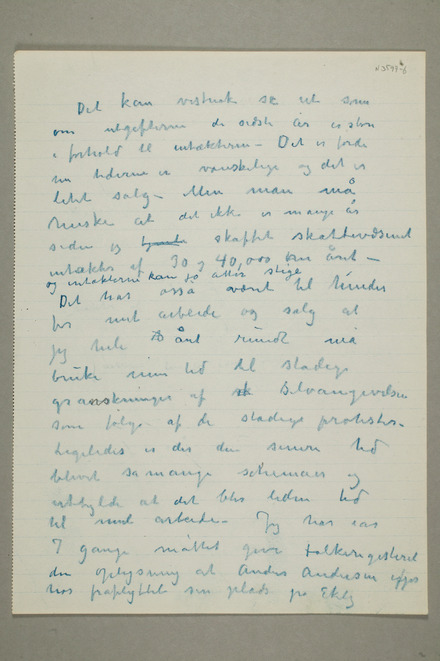 N 3549-6
Det kan vistnok se ut som
om utgifterne de sidste år er store
i forhold til intækterne – Det er fordi
nu tiderne er vanskelige og det er
litet salg – Men man må
huske at det ikke er mange år
siden jeg skaffet skattevæsenet
intækter af 30 og 40,000 kr året –
og intækterne kan jo atter stige
Det har også været til hinder
for mit arbeide og salg at
jeg hele året rundt må
bruke min tid til stadige
granskninger af Selvangivelsen
som følge af de stadige protester.
Ligeledes er der den senere tid
blevet så mange schemaer og
utfylde at det blir liden tid
til mit arbeide – Jeg har
7 gange måttet give Folkeregisteret
den oplysning at Anders Andersen
har fraflyttet sin plads på Ekely